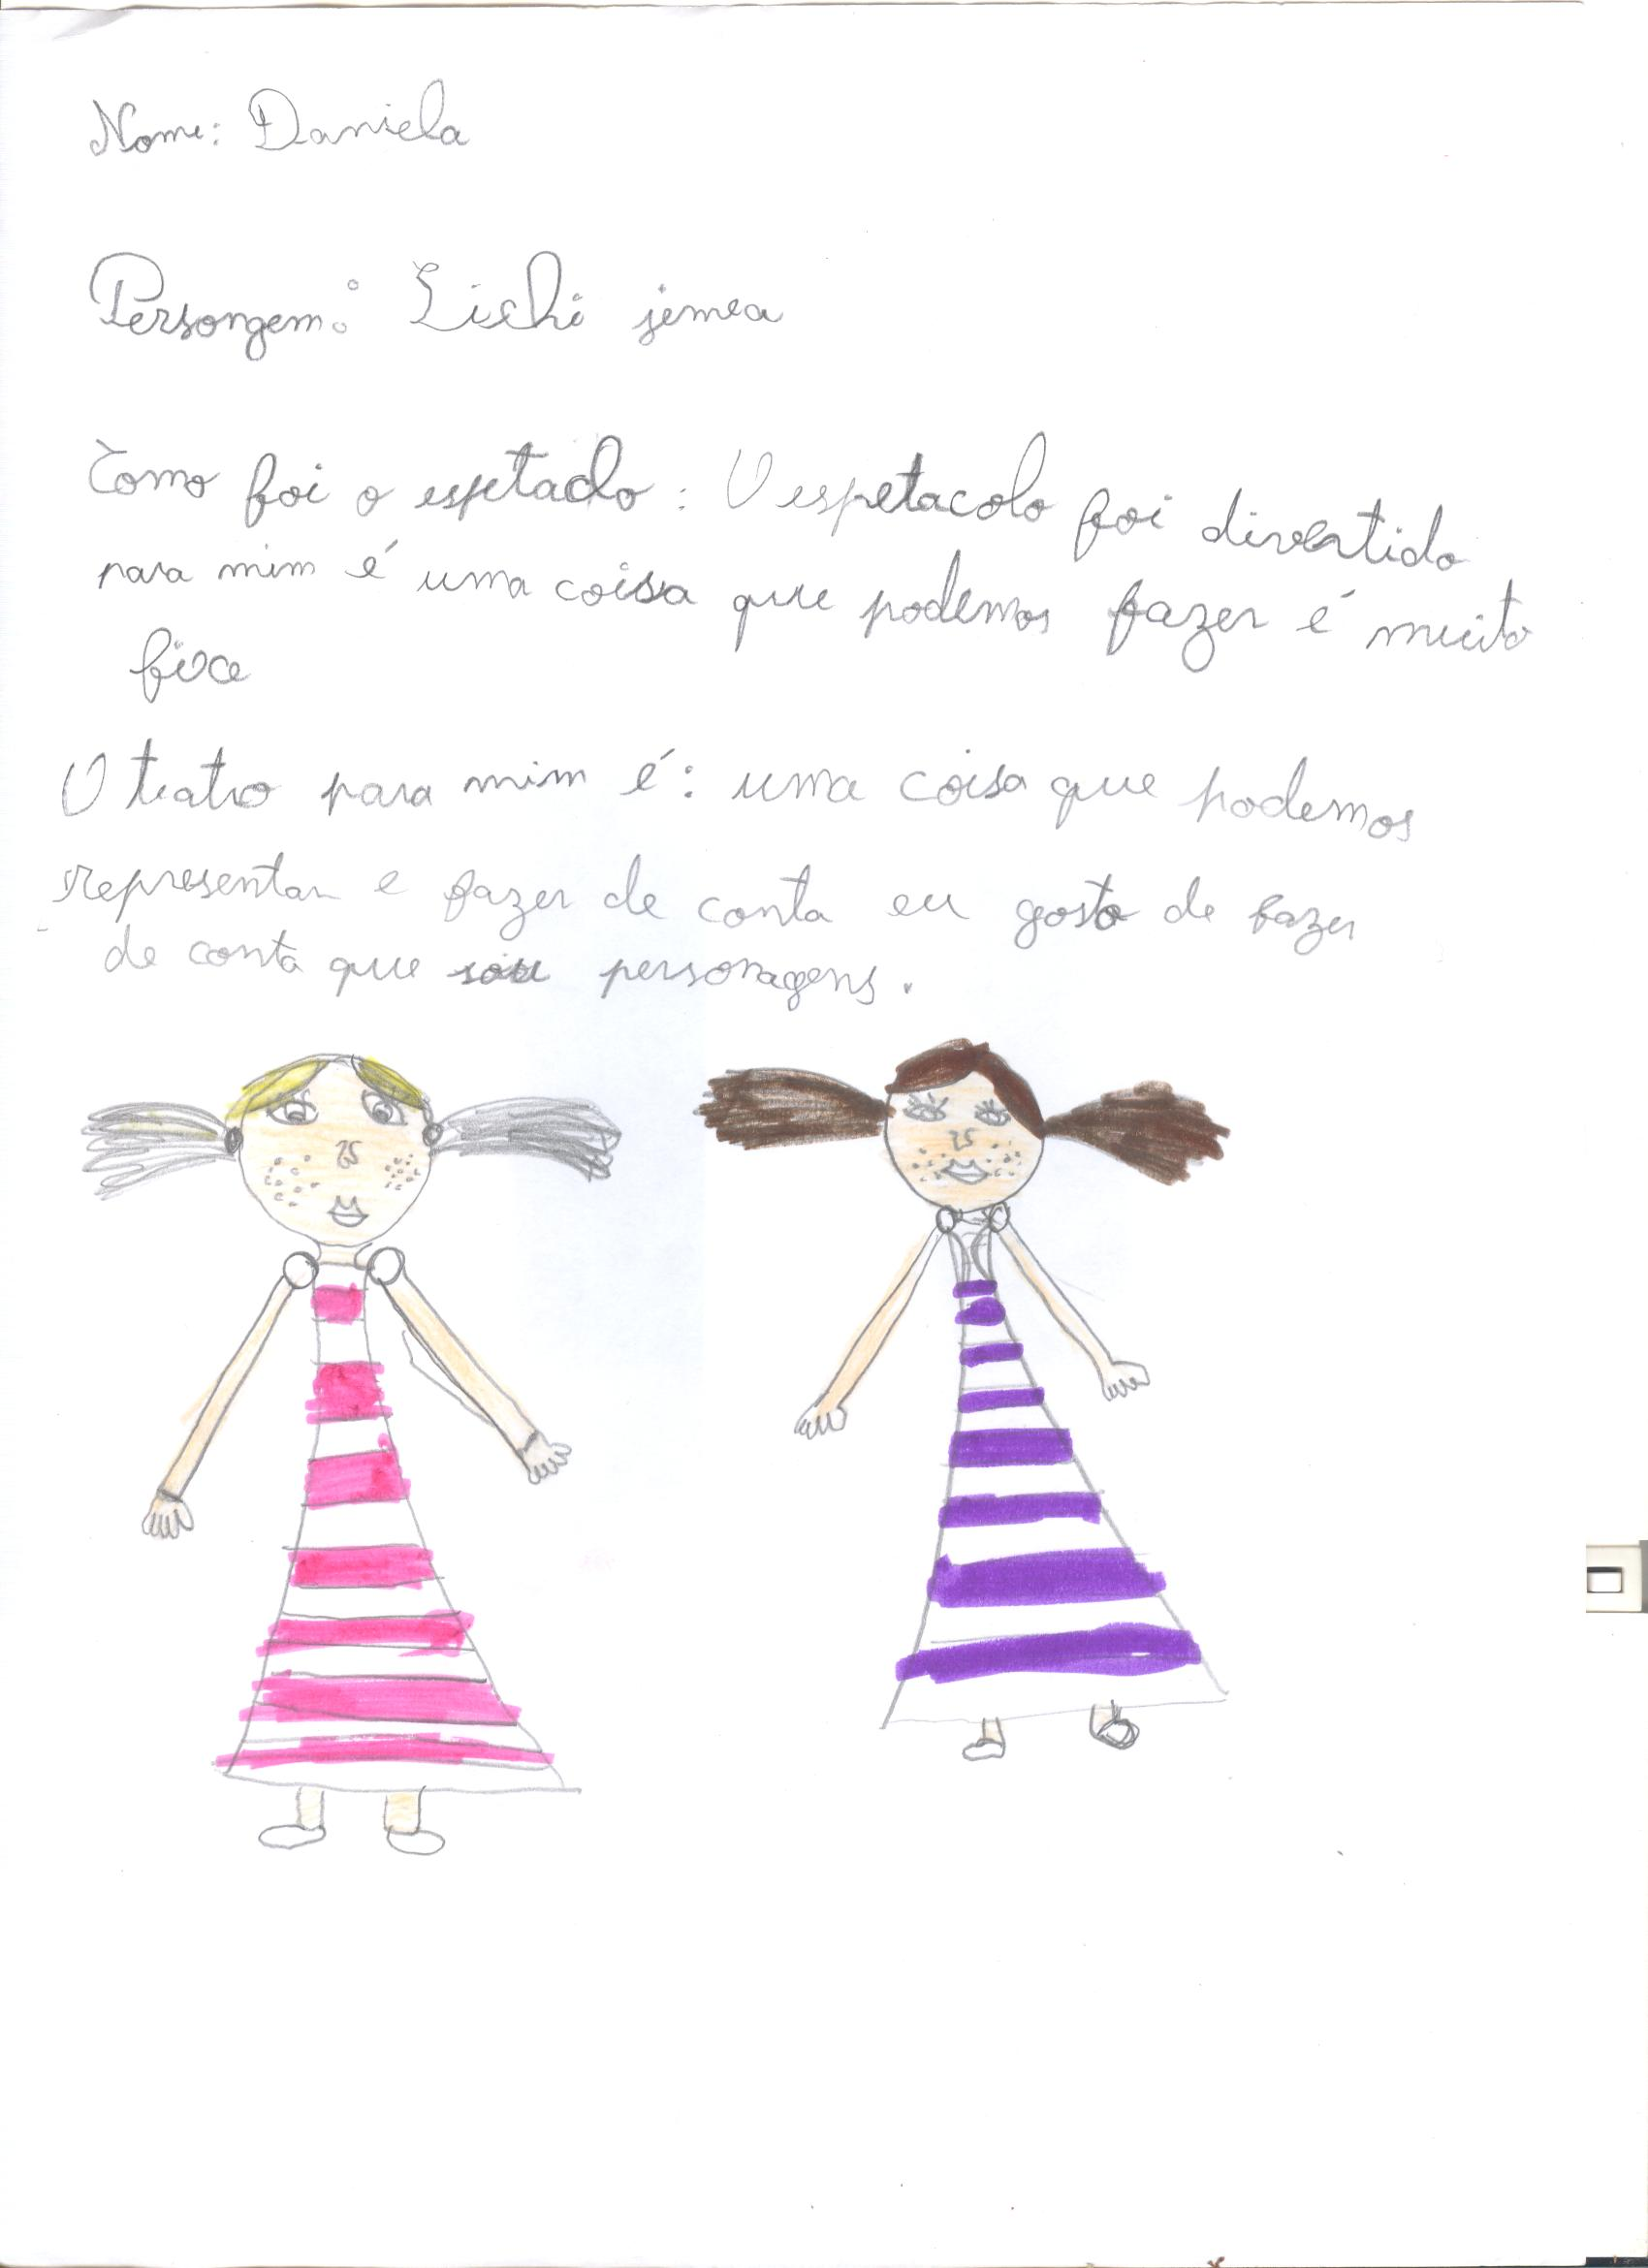 Nome: Daniela
Persongem: Lichi jemea
Como foi o espetaclo: O espetacolo foi divertido
para mim é uma coisa que podemos fazer é muito
fixe
O teatro para mim é: uma coisa que podemos
representar e fazer de conta eu gosto de fazer
de conta que sou personagens.